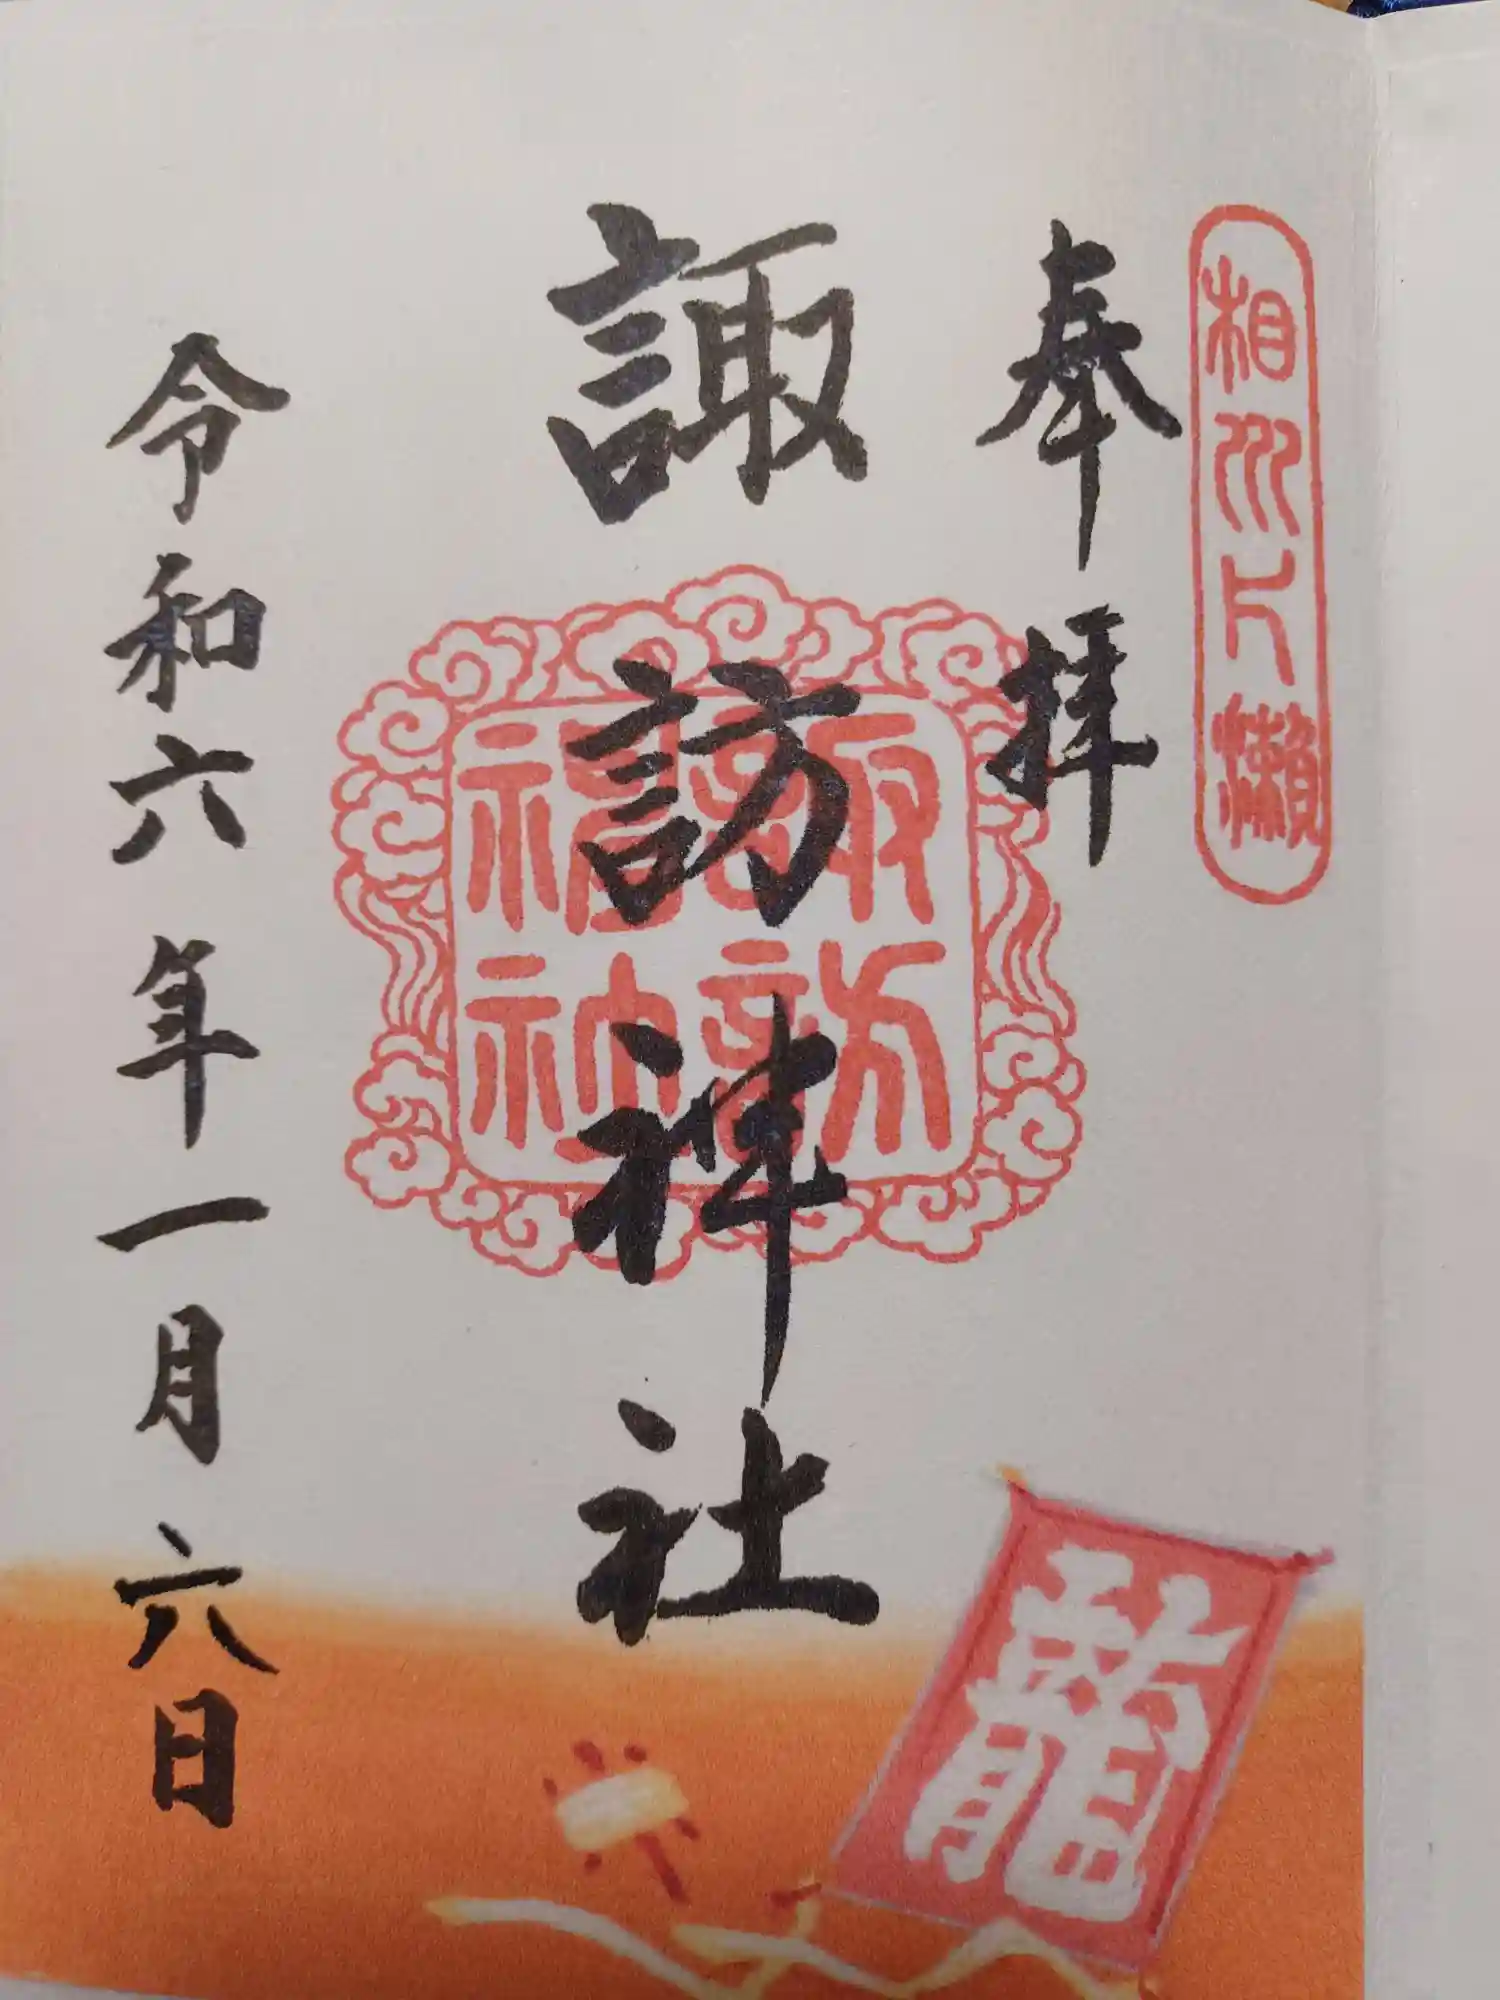 相州片瀬
奉拝
諏訪神社
諏訪神社
令和六年一月六日
龍